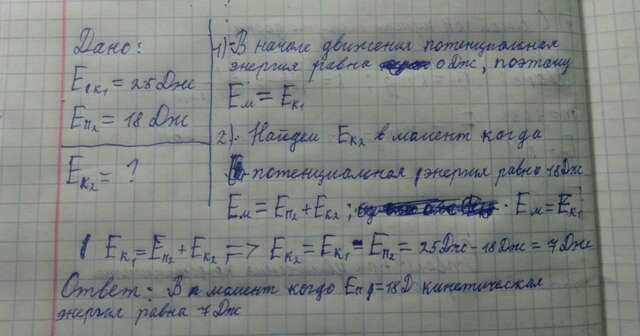 Дано:
E к₁ = 25 Дж
Eп₂ = 18 Дж
Eк₂ = ?
1) В начале движения потенциальная
энергия равна 0 Дж, поэтому
Eм = Eк₁
2). Найдем Eк₂ в момент когда
потенциальная энергия равна 18 Дж
Eм = Eп₂ + Eк₂; . Eм = Eк₁
Eк₁ = Eп₂ + Eк₂ => Eк₂ = Eк₁ - Eп₂ = 25 Дж - 18 Дж = 7 Дж
Ответ: В момент когдо Eп = 18 D кинетическая
энергия равна 7 Дж